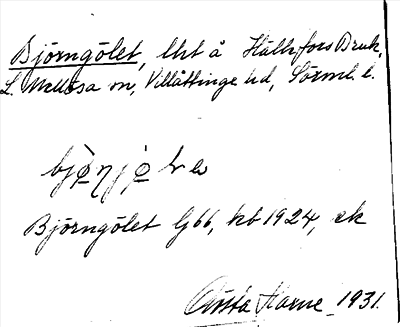 Björngölet, lht å Hälleforsbruk,
L. Mellösa sn, Villåttinge hd, Sörml. l.
Björngölet G66, kb 1924, ek
1931.